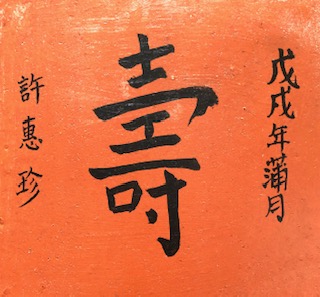 戊戌年蒲月
壽
許惠珍